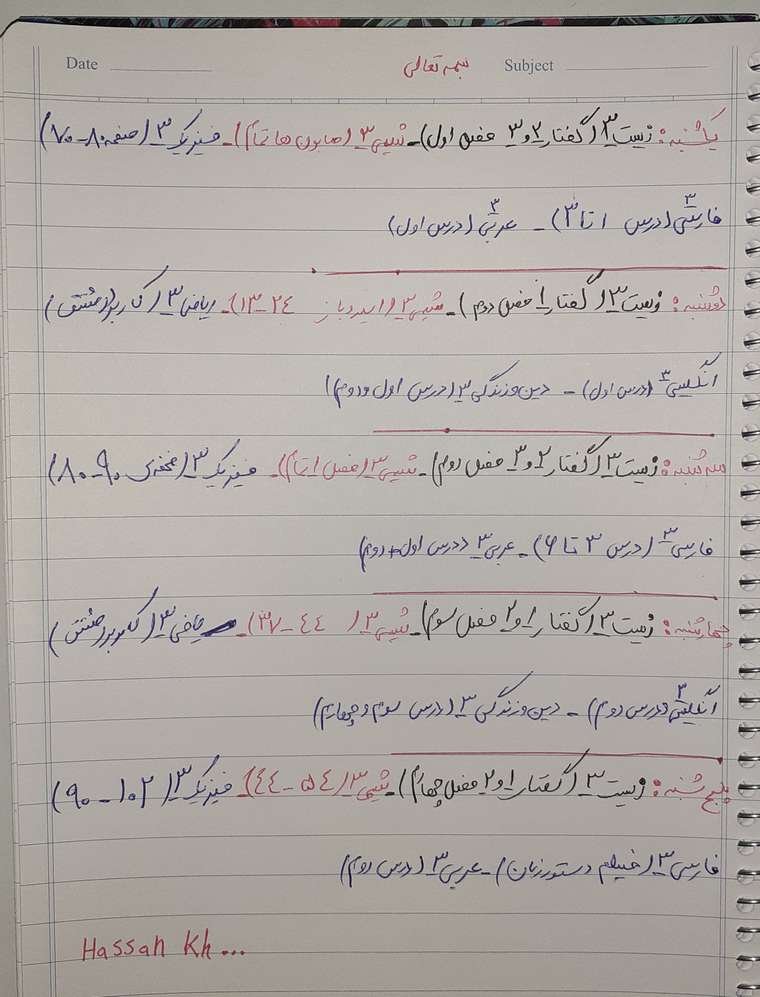 Date بسمه تعالی Subject
یکشنبه: زیست ۳ (گفتار ۲ و ۳ فصل اول) - شیمی ۳ (صابون ها تمام) - فیزیک ۳ (صفحه ۸۰ - ۷۰)
فارسی ۳ (درس ۱ تا ۳) - عربی ۳ (درس اول)
دوشنبه: زیست ۳ (گفتار ۱ فصل دوم) - شیمی ۳ (اسید و باز ۲۴ - ۱۳) - ریاضی ۳ (کاربرد مشتق)
انگلیسی ۳ (درس اول) - دین و زندگی ۳ (درس اول و دوم)
سه شنبه: زیست ۳ (گفتار ۲ و ۳ فصل دوم) - شیمی ۳ (فصل ۱ تمام) - فیزیک ۳ (۹۰ - ۸۰)
فارسی ۳ (درس ۳ تا ۶) - عربی ۳ (درس اول + دوم)
چهارشنبه: زیست ۳ (گفتار ۱ و ۲ فصل سوم) - شیمی ۳ (۴۴ - ۳۷) - ریاضی ۳ (کاربرد مشتق)
انگلیسی ۳ (درس دوم) - دین و زندگی ۳ (درس سوم و چهارم)
پنج شنبه: زیست ۳ (گفتار ۱ و ۲ فصل چهارم) - شیمی ۳ (۵۴ - ۴۴) - فیزیک ۳ (۱۰۲ - ۹۰)
فارسی ۳ (فیلم دستور زبان) - عربی ۳ (درس دوم)
Hassan Kh...